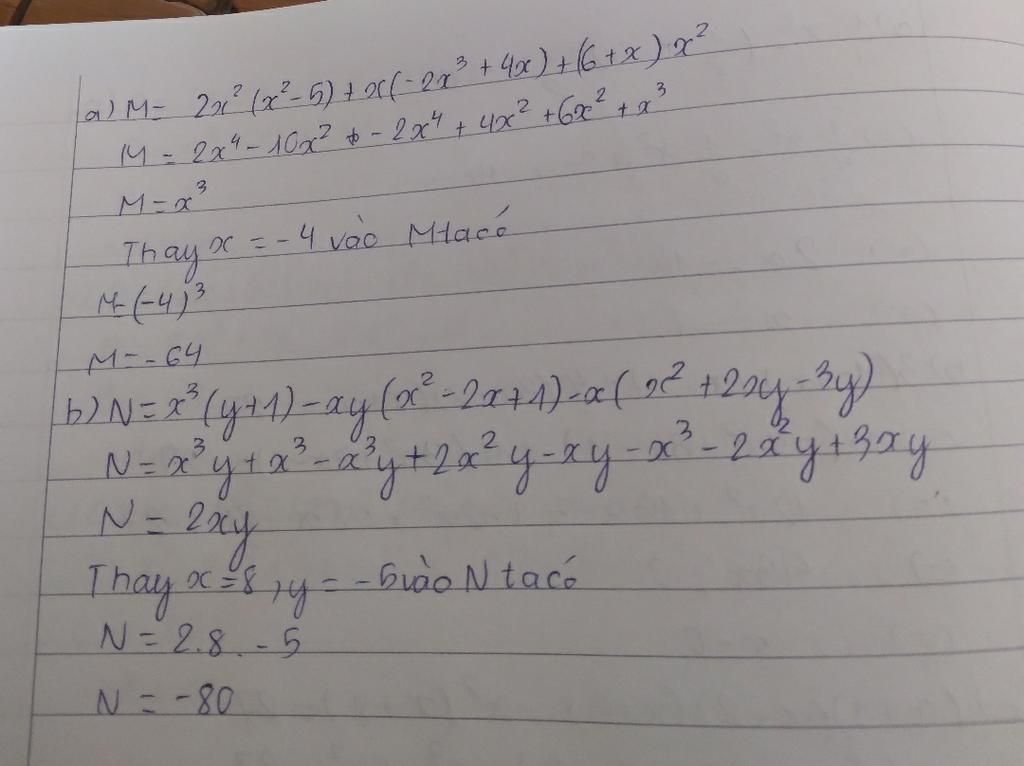 a) M = 2x²(x²-5) + x(-2x³ + 4x) + (6+x).x²
M = 2x⁴ - 10x² + - 2x⁴ + 4x² + 6x² + x³
M = x³
Thay x = -4 vào M ta có
M = (-4)³
M = -64
b) N = x³(y+1) - xy(x² - 2x+1) - x(x² + 2xy - 3y)
N = x³y + x³ - x³y + 2x²y - xy - x³ - 2x²y + 3xy
N = 2xy
Thay x = 8, y = -5 vào N ta có
N = 2.8. -5
N = -80